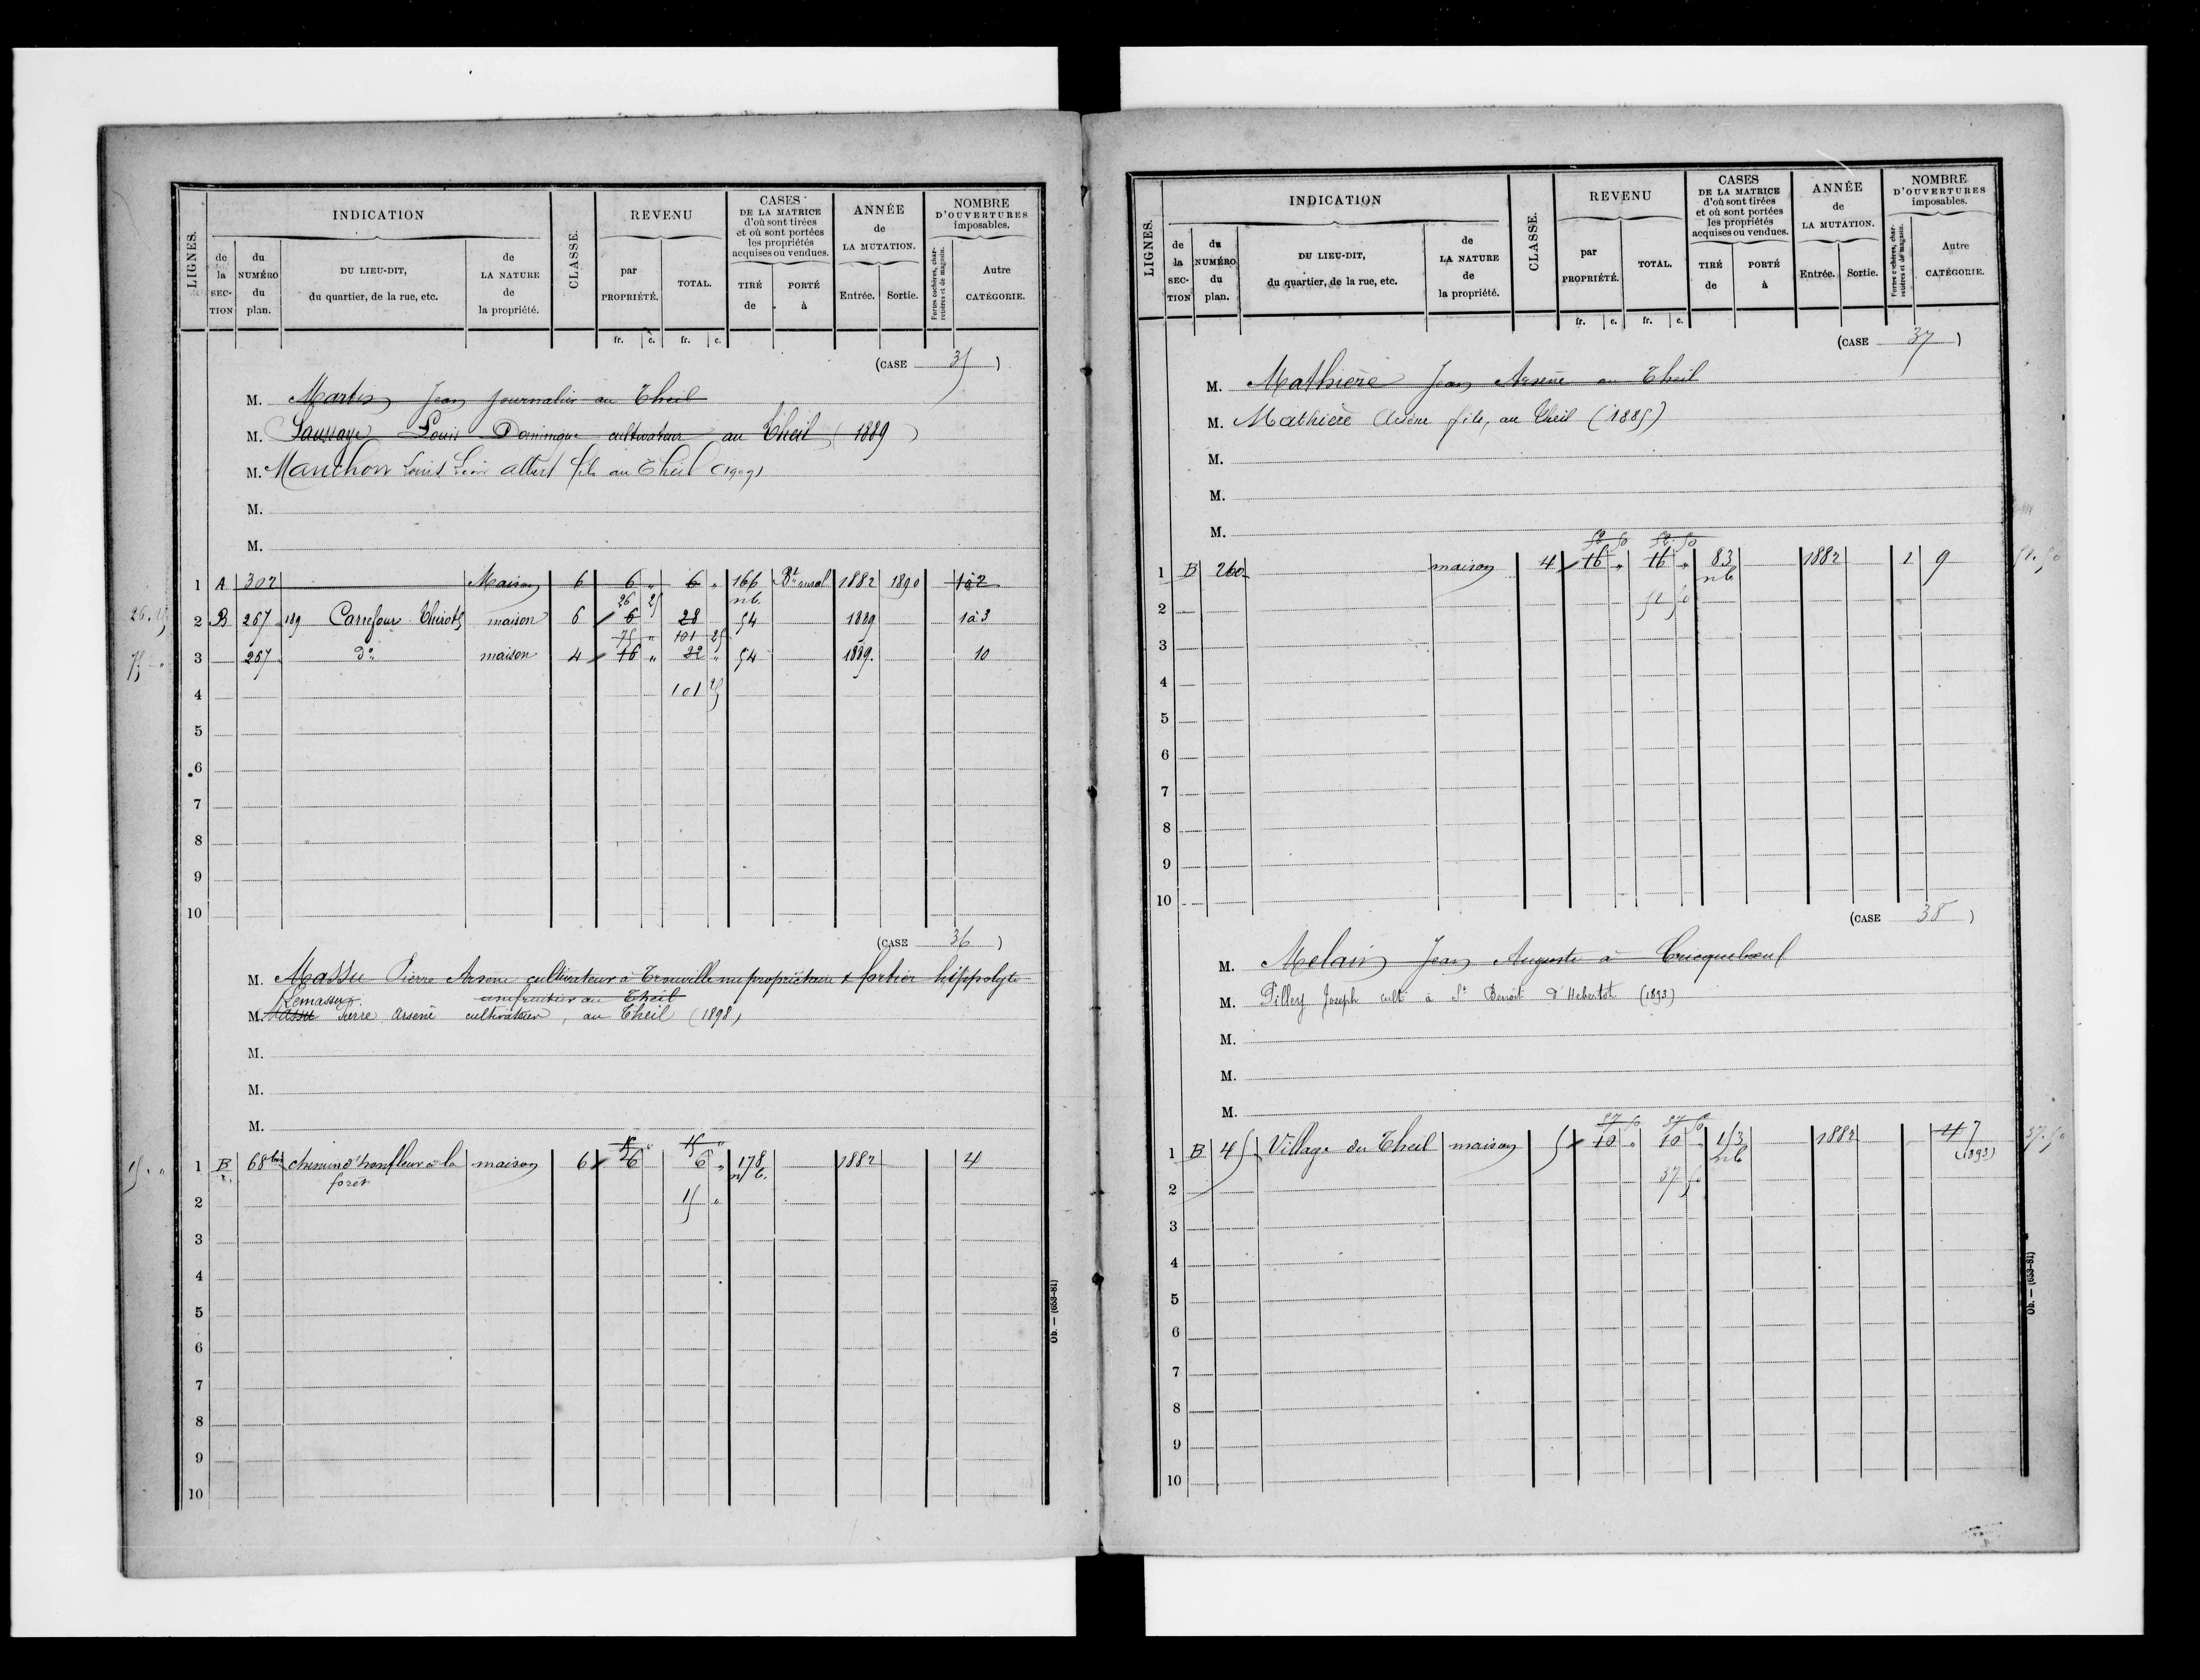 LIGNES.
INDICATION
de la SECTION
du NUMÉRO du plan.
DU LIEU-DIT, du quartier, de la rue, etc.
de LA NATURE de la propriété.
CLASSE.
REVENU
par PROPRIÉTÉ.
TOTAL.
CASES DE LA MATRICE d'où sont tirées et où sont portées les propriétés acquises ou vendues.
TIRÉ de
PORTÉ à
ANNÉE de LA MUTATION.
Entrée.
Sortie.
NOMBRE D'OUVERTURES imposables.
Portes cochères, charretières et de magasin.
Autre CATÉGORIE.
fr. c. fr. c.
(CASE 35)
M. Martin Jean journalier au Theil
M. Saussaye Louis Dominique cultivateur au Theil (1889)
M. Manchon Louis Léon albert fils au Theil (1909)
M.
M.
1 A 302 Maison 6 6 " 6 " 166 Bt rural 1882 1890 1à2
26 25 n.b.
26.25 2 B 267 189 Carrefour Thirots maison 6 6 28 54 1889 1à3
75 " 101 25
75 " 3 267 do maison 4 16 " 22 " 54 1889. 10
4 101 25
5
6
7
8
9
10
(CASE 36)
M. Massu Pierre Arsène cultivateur à Trouville nu propriétaire & fortier hippolyte
usufruitier au Theil
Lemassu
M. Massu Pierre Arsène cultivateur, au Theil (1898)
M.
M.
M.
15 " 15 "
15. " 1 B 68 bis chemin d'honfleur à la maison 6 6 6 " 178 1882 4
forêt n.b.
2 15 "
3
4
5
6
7
8
9
10
Ob. — (653-81)
LIGNES.
INDICATION
de la SECTION
du NUMÉRO du plan.
DU LIEU-DIT, du quartier, de la rue, etc.
de LA NATURE de la propriété.
CLASSE.
REVENU
par PROPRIÉTÉ.
TOTAL.
CASES DE LA MATRICE d'où sont tirées et où sont portées les propriétés acquises ou vendues.
TIRÉ de
PORTÉ à
ANNÉE de LA MUTATION.
Entrée.
Sortie.
NOMBRE D'OUVERTURES imposables.
Portes cochères, charretières et de magasin.
Autre CATÉGORIE.
fr. c. fr. c.
(CASE 37)
M. Mathière Jean Arsène au Theil
M. Mathière Arsène fils, au Theil (1885)
M.
M.
M.
52 50 52 50
1 B 260 maison 4 16 " 16 " 83 1882 1 9 52.50
n.b.
2 52 50
3
4
5
6
7
8
9
10
(CASE 38)
M. Melain Jean Auguste à Cricquebœuf
M. Pilley Joseph cult à St Benoît d'Hebertot (1893)
M.
M.
M.
37 50 37 50
1 B 45 Village du Theil maison 5 10 " 10 " 153 1882 4 7 37.50
n.b. (1893)
2 37 50
3
4
5
6
7
8
9
10
Ob. — (653-81)